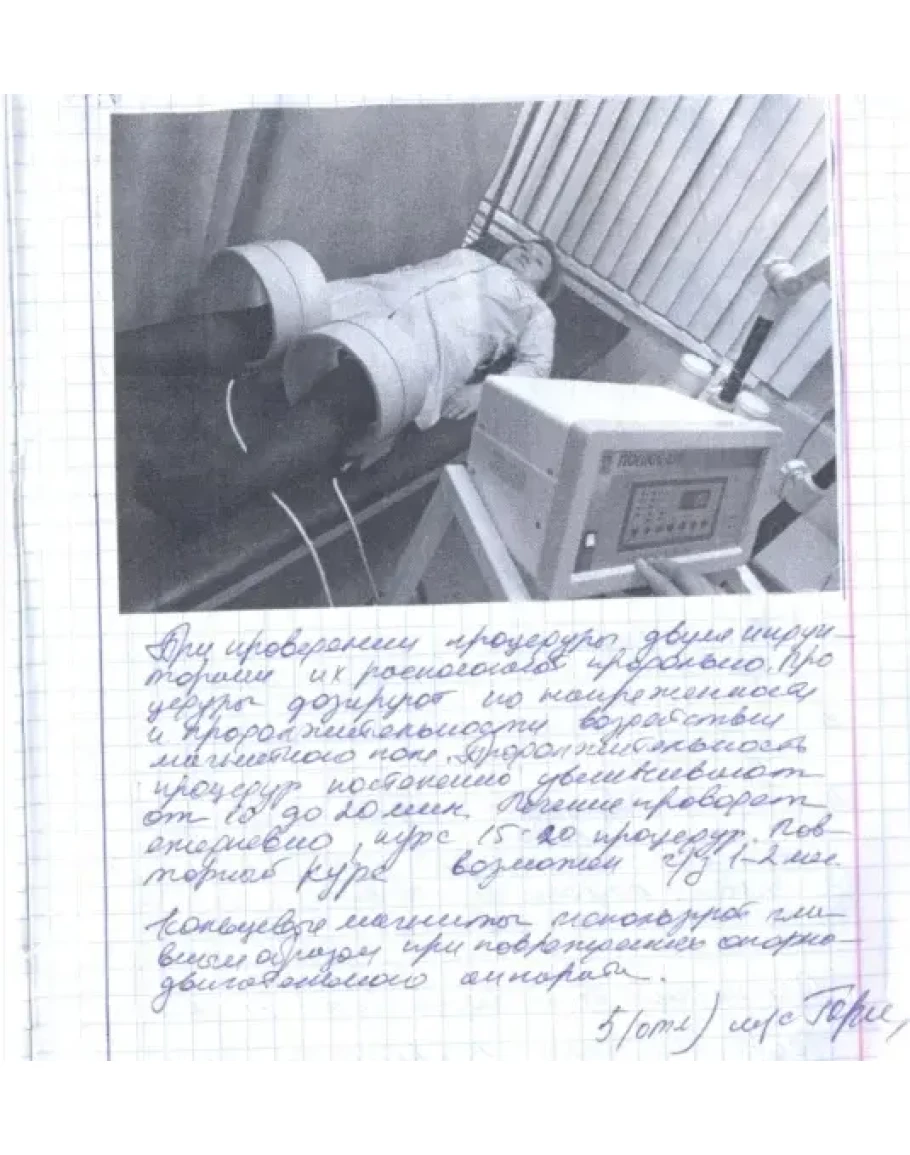 ПОЛЮС-2М
При проведении процедуры двумя индук-
торами их располагают продольно. Про
цедуры дозируют по напряженности
и продолжительности воздействия
магнитного поля. Продолжительность
процедур постепенно увеличивают
от 10 до 20 мин. Лечение проводят
ежедневно, курс 15-20 процедур. Пов-
торный курс возможен ч/з 1-2 мес.
Кольцевые магниты используют гла-
вным образом при повреждениях опорно-
двигательного аппарата.
5 (отл) м/с